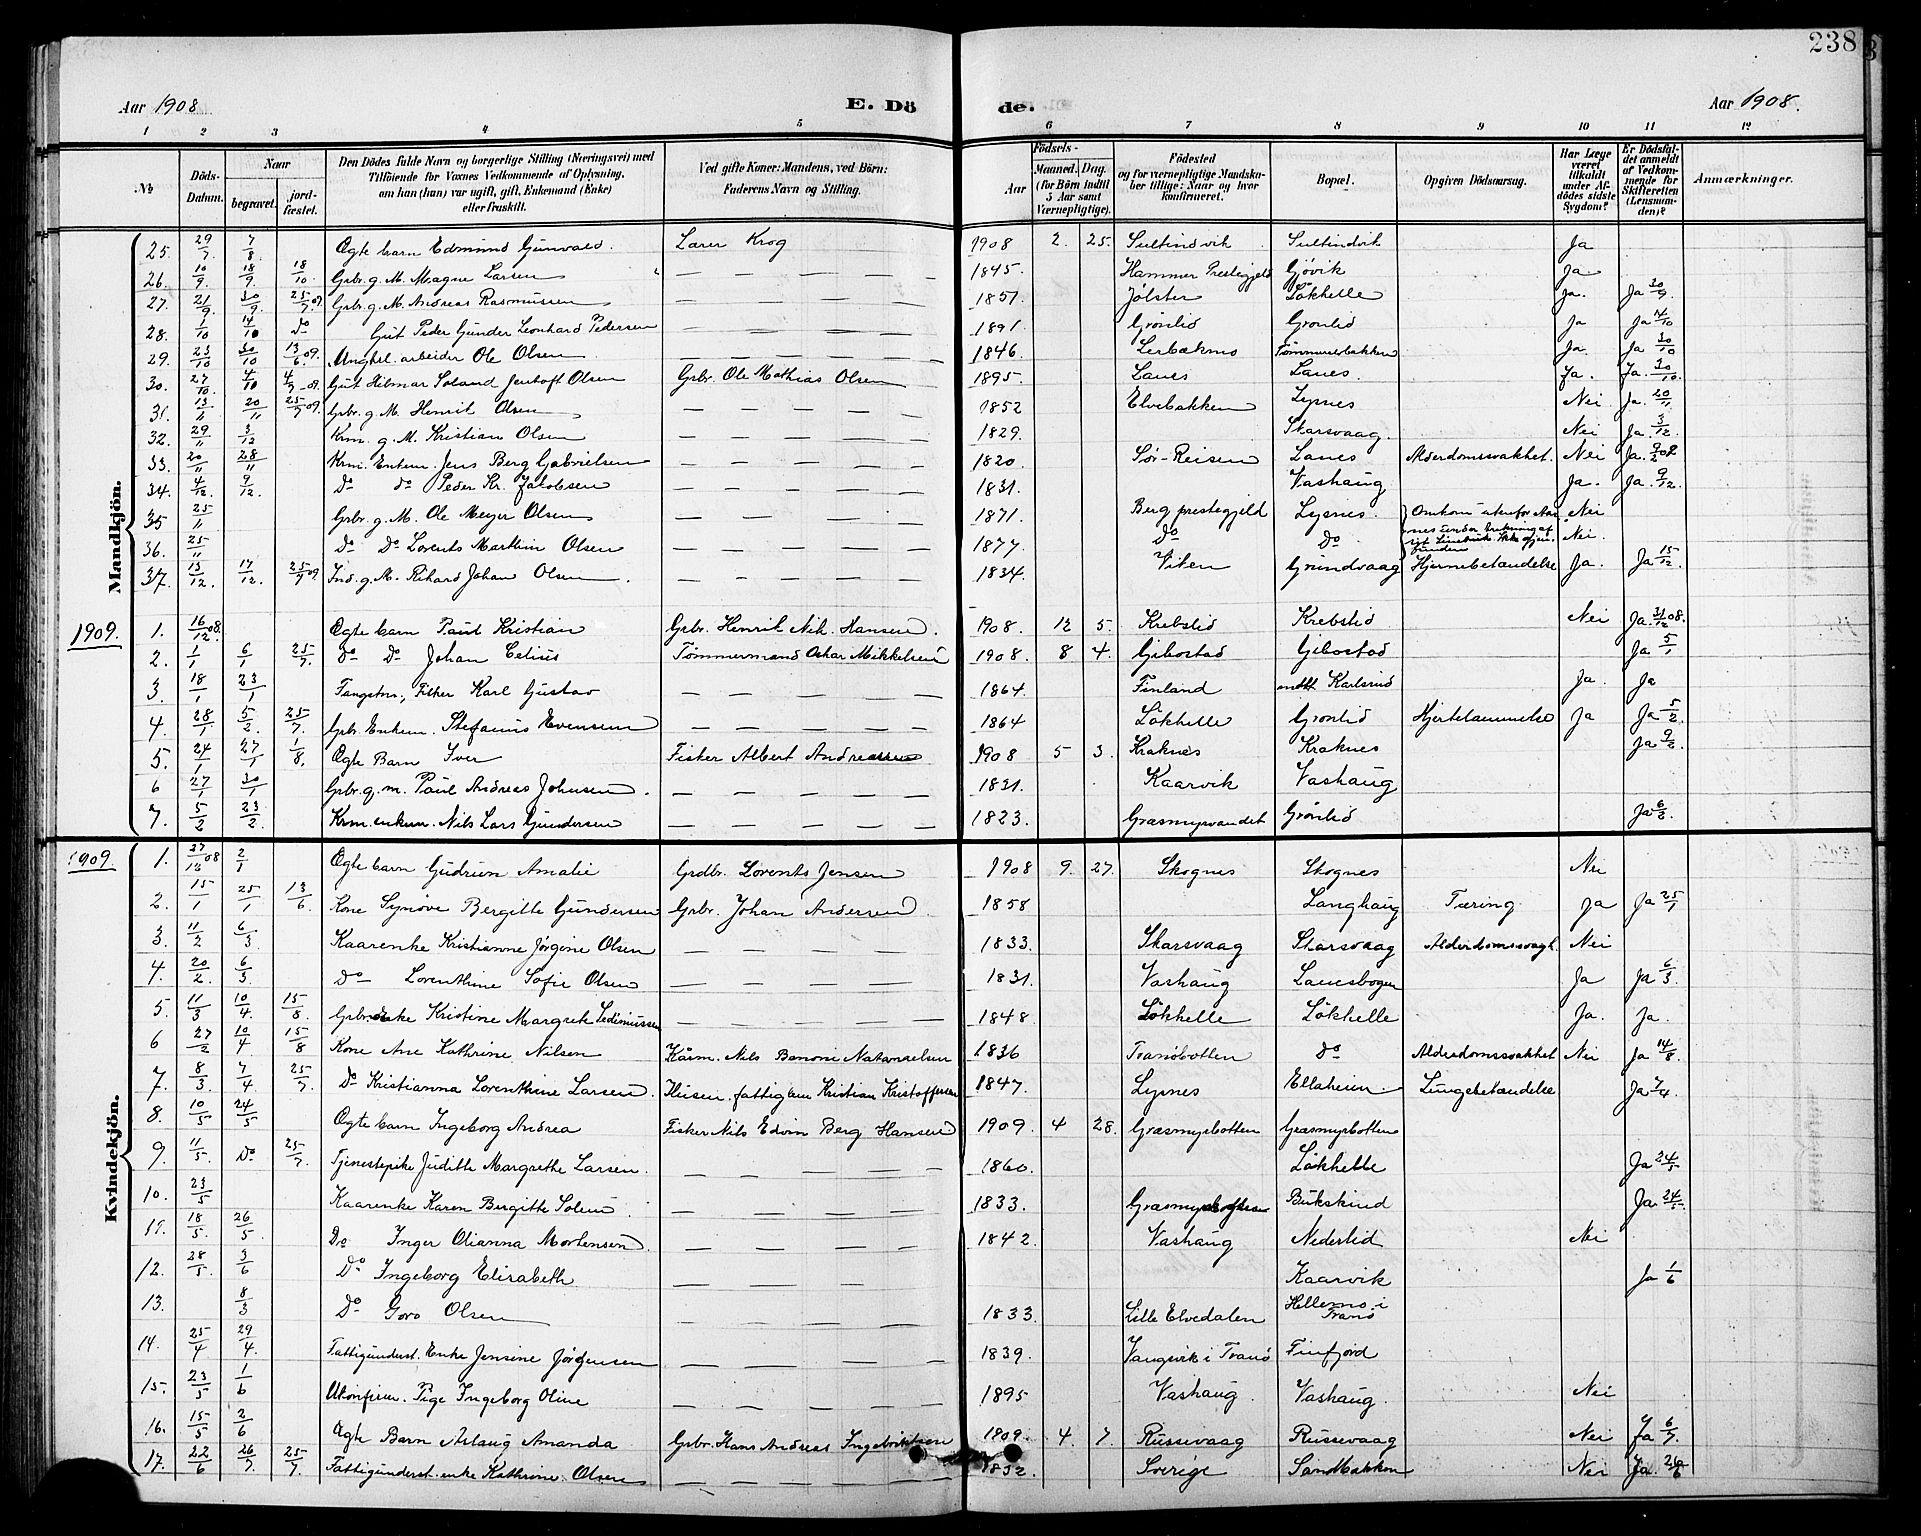 238
Aar 1908
E. Dö
de.
Aar 1908.
1 2 3 4 5 6 7 8 9 10 11 12
No
Döds-Datum.
Naar
begravet.
jordfæstet.
Den Dödes fulde Navn og borgerlige Stilling (Næringsvei) med
Tilföiende for Voxnes Vedkommende af Oplysning,
om han (hun) var ugift, gift, Enkemand (Enke)
eller fraskilt.
Ved gifte Koner: Mandens, ved Börn:
Faderens Navn og Stilling.
Födsels-
Aar
Maaned. Dag.
(for Börn indtil
5 Aar samt
Værnepligtige).
Födested
og for værnepligtige Mandska-
ber tillige: Naar og hvor
konfirmeret.
Bopæl.
Opgiven Dödsaarsag.
Har Læge
været
tilkaldt
under Af-
dödes sidste
Sygdom?
Er Dödsfal-
det anmeldt
af Vedkom-
mende for
Skifteretten
(Lensman-
den)?
Anmærkninger.
Mandkjön.
25. 29/7 7/8 Ægte barn Edmund Gunvald. Larer Krog 1908 2. 25. Sultindvik Sultindvik Ja
26. 10/9 18/9. 18/10 Grbr. g. M. Magne Larsen — — — — — 1845. Hammer Prestegjeld Gjövik Ja
27. 21/9 30/9 25/7 09. Grbr. g. M. Andreas Rasmussen — — — — — 1851. Jölster Lökhelle Ja. Ja 30/9
28. 1/10 14/10 do Gut Peder Gunder Leonhard Pedersen — — — — — 1891. Grönlid Grönlid Ja Ja 14/10
29. 23/10 30/10 13/6. 09. arbeider Ole Olsen — — — — — 1846. Lerbækmo Tömmeresbakken Ja. Ja 30/10
30. 27/10 4/10 4/7 09. Gut Hilmar Soland Jentoft Olsen Grbr. Ole Mathias Olsen 1895. Lanes Lanes. Ja. Ja. 30/10.
31. 13/11 20/11 25/7 09. Grbr. g. M. Henrik Olsen — — — — — 1852 Elvebakken Lysnes Nei Ja. 20/11
32. 29/11 3/12 Krm. g. M. Kristian Olsen — — — — — 1829. Skarsvaag. Nei Ja. 3/12.
33. 20/11 28/11 Krm. Enkem. Jens Berg Gabrielsen — — — — — 1820. Sör-Reisen Lanes Alderdomssvakhet. Nei Ja.
34. 4/12. 9/12. Do do Peder Kr. Jakobsen — — — — — 1831. Vashaug Ja. Ja. 9/12.
35 25/11 Grbr. g. M. Ole Meyer Olsen — — — — — 1871. Berg prestegjeld Lysnes. Omkom utenfor Nei
36. 25/11 Do Do Lorents Marthin Olsen — — — — — 1877. Do Do Nei.
37. 13/12. 17/12. 25/7 09. Ind. g. M. Rikard Johan Olsen. — — — — — 1834. Viken Grundvaag Hjernebetændelse Ja. Ja 15/12
1909. 1. 16/12 08. Ægte barn Paul Kristian Grbr. Henrik Nik. Hansen. 1908. 12 5. Krebslid Krebslid Nei Ja. 31/12 08.
2. 1/1 6/1 25/7. Do Do Johan Celius Tömmermand Oskar Mikkelsen 1908. 8 4. Gibostad Gibostad Ja 5/1
3. 18/1 23/1 Fangstm., Fisker Karl Gustav — — — — 1864. Finland Karlsrud Ja. Ja
4. 28/1 5/2 25/7. Grb. Enkem. Stefanus Evensen — — — — — 1864 Lökhelle Grönlid Hjertelammelse Ja Ja 5/2
5. 24/1 27/1 1/8. Ægte Barn Iver Fisker Albert Andreassen 1908 5 3. Kraknes Kraknes Ja 9/2.
6 27/1 30/1 Grbr. g. m. Paul Andreas Johnsen. — — — — — 1831. Kaarvik Vashaug
7. 5/2 23/2. Krm. enkem. Nils Lars Gundersen — — — — — 1823. Græsmyrvandet Grönlid Ja 6/2.
Kvindekjön.
1909. 1. 27/12 08 2/1 Ægte barn Gudrun Amalie Grdbr. Lorents Jensen 1908 9. 27. Skognes Skognes Nei
2. 15/1 25/1 13/6 Kone Synöve Bergitte Gundersen Grbr. Johan Andersen. 1858 Langhaug Tæring Ja Ja 25/1
3. 11/2 6/3. Kaarenke Kristianne Jörgine Olsen — — — — — 1833. Skarsvaag Skarsvaag Alderdomssvagh. Nei
4. 20/2. 6/3. Do Lorenthine Sofie Olsen — — — — — 1831. Vashaug Lanesbogen Ja Ja 6/3.
5. 11/3 10/4. 15/8. Grbr. enke Kristine Margrete Ledimussen — — — — — 1848. Lökhelle Lökhelle Ja. Ja.
6 27/2 10/4 15/8 Kone Ane Kathrine Nilsen Kårm. Nils Benoni Natanaelsen 1836 Tranöbotten Do Alderdomssvakhet Nei Ja 14/8.
7. 8/3 7/4 25/7. Do Kristianna Lorenthine Larsen. Husm. fattiglem Kristian Kristoffersen 1847. Lysnes Ellaheim. Lungebetændelse Ja 7/4.
8. 10/5 24/5 Ægte barn Ingeborg Andrea Fisker Nils Edvin Berg Hansen 1909. 4 28. Græsmyrbotten Græsmyrbotten
9. 11/5. Do 25/7. Tjenestepike Judithe Margrethe Larsen. — — — — — 1860. Lökhelle Ja 24/5
10. 23/5 Kaarenke Karen Bergitte Solem — — — — — 1833. Bukskind Ja. 24/5.
11. 18/5. 26/5. Do Inger Olianna Mortensen. — — — — — 1842. Vashaug Nederlid Nei
12. 28/5. 3/6 Do Ingeborg Elisabeth — — — — Kaarvik Ja 1/6
13. 8/3 Do Goro Olsen — — — — — 1833. Lille Elvedalen Hellemo i Tranö
14. 25/4 29/4. Fattigunderst. Enke Jensine Jörgensen — — — — — 1839. Vangsvik i Tranö Finfjord
15. 23/5 1/6 Ukonfirm. Pige Ingeborg Oline — — — — — 1895 Vashaug. Vashaug. Nei
16. 15/5 2/6 Ægte Barn Aslaug Amanda Grbr. Hans Andreas Ingebriktsen 1909. 4. 7. Russevaag Russevaag Nei Ja 6/7
17. 22/6 26/7. 25/7. Fattigunderst. enke Kathrine Olsen — — — — — 1832. Sverige Sandbakken Nei Ja. 26/6